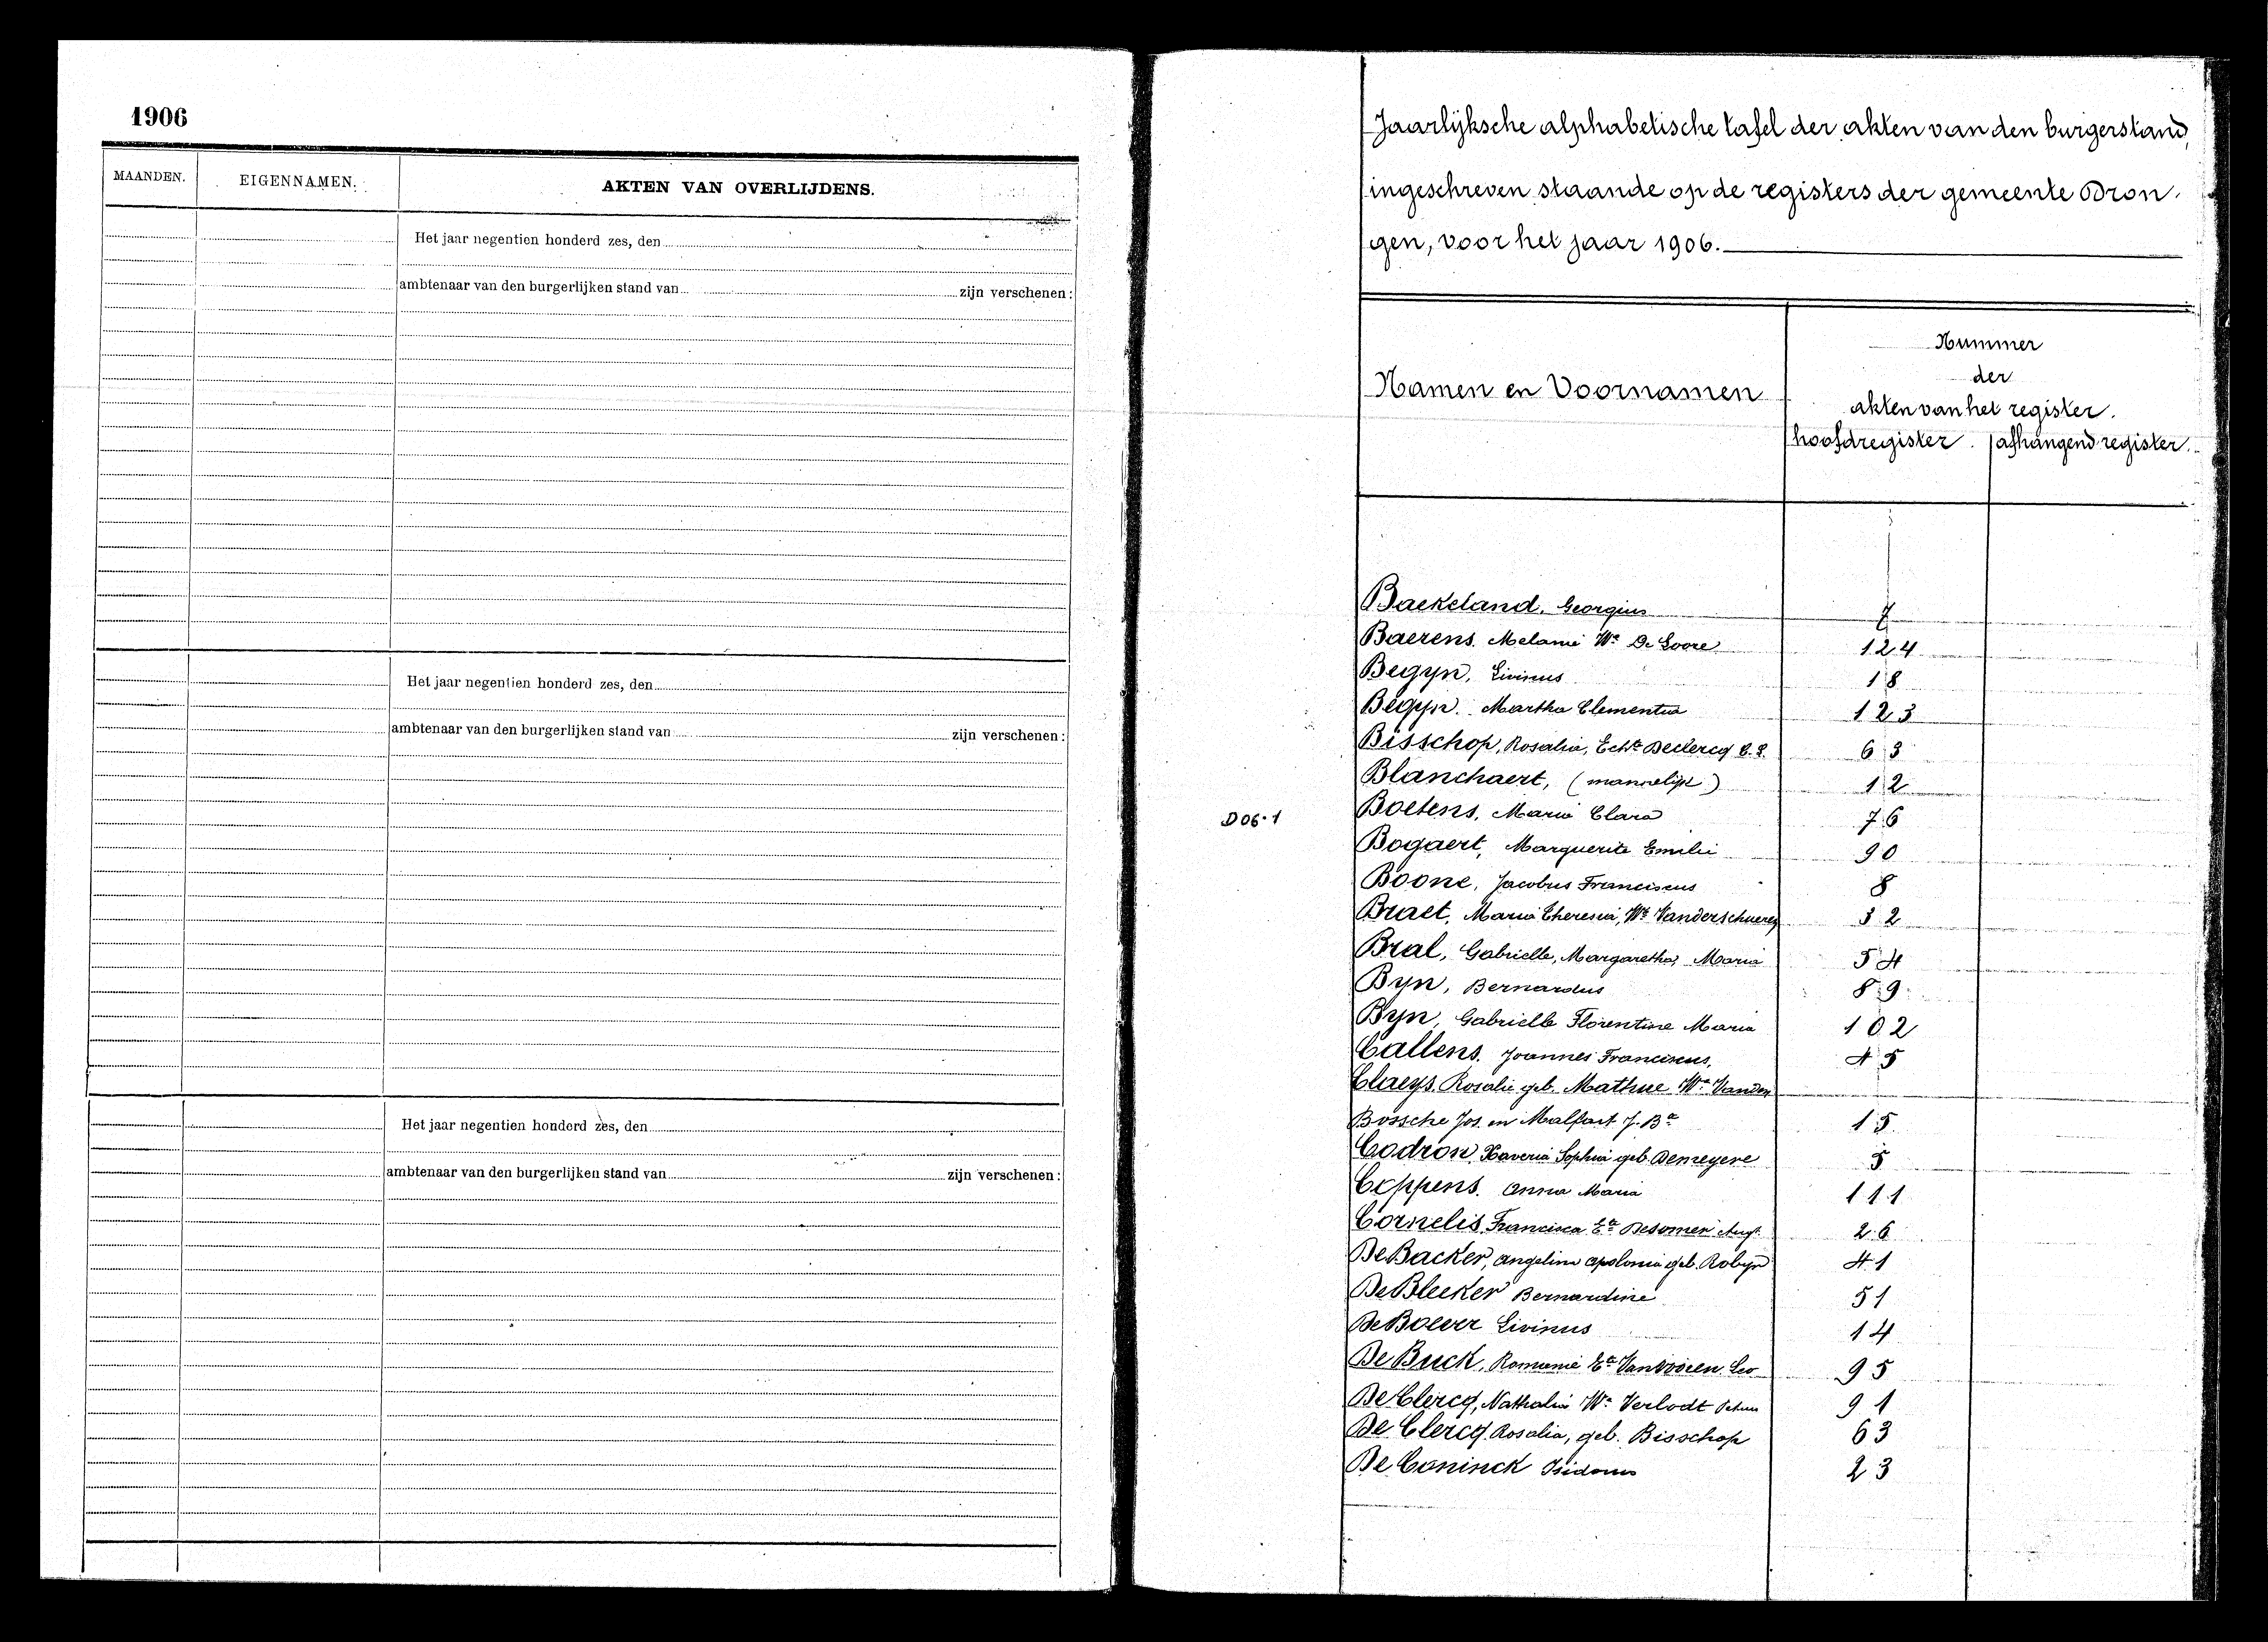 1906
MAANDEN.
EIGENNAMEN.
AKTEN VAN OVERLIJDENS.
Het jaar negentien honderd zes, den
ambtenaar van den burgerlijken stand van zijn verschenen:
Het jaar negentien honderd zes, den
ambtenaar van den burgerlijken stand van zijn verschenen:
Het jaar negentien honderd zes, den
ambtenaar van den burgerlijken stand van zijn verschenen:
Jaarlijksche alphabetische tafel der akten van den burgerstand,
ingeschreven staande op de registers der gemeente Dron-
gen, voor het jaar 1906.
Namen en Voornamen
Nummer
der
akten van het register.
hoofdregister. afhangend register.
Baekeland, Georgius 7
Baerens, Melanie We De Loore 124
Begyn, Livinus 18
Begyn, Martha Clementia 123
Bisschop, Rosalia, Echte Declercq 63
Blanchaert, (mannelijk) 12
D06.1
Boetens, Maria Clara 76
Bogaert, Marguerite Emilie 90
Boone, Jacobus Franciscus 8
Braet, Maria Theresia, We Vanderschueren 32
Bral, Gabrielle, Margaretha, Maria 54
Byn, Bernardus 89
Byn, Gabrielle Florentine Maria 102
Callens, Joannes Franciscus, 45
Claeys, Rosalie geb. Mathue We Vanden
Bossche Jos. en Malfait J. Bte 15
Codron Xaveria Sophia geb. Demeyere 5
Coppens, Anna Maria 111
Cornelis, Francisca Ete Desomer Augt. 26
De Backer, Angelina Apolonia geb. Robyn 41
De Bleeker Bernardine 51
De Boever Livinus 14
De Buck, Romanie Ete Vanvooren Leo 95
De Clercq, Nathalia We Verlodt Petrus 91
De Clercq Rosalia, geb. Bisschop 63
De Coninck Isidorus 23